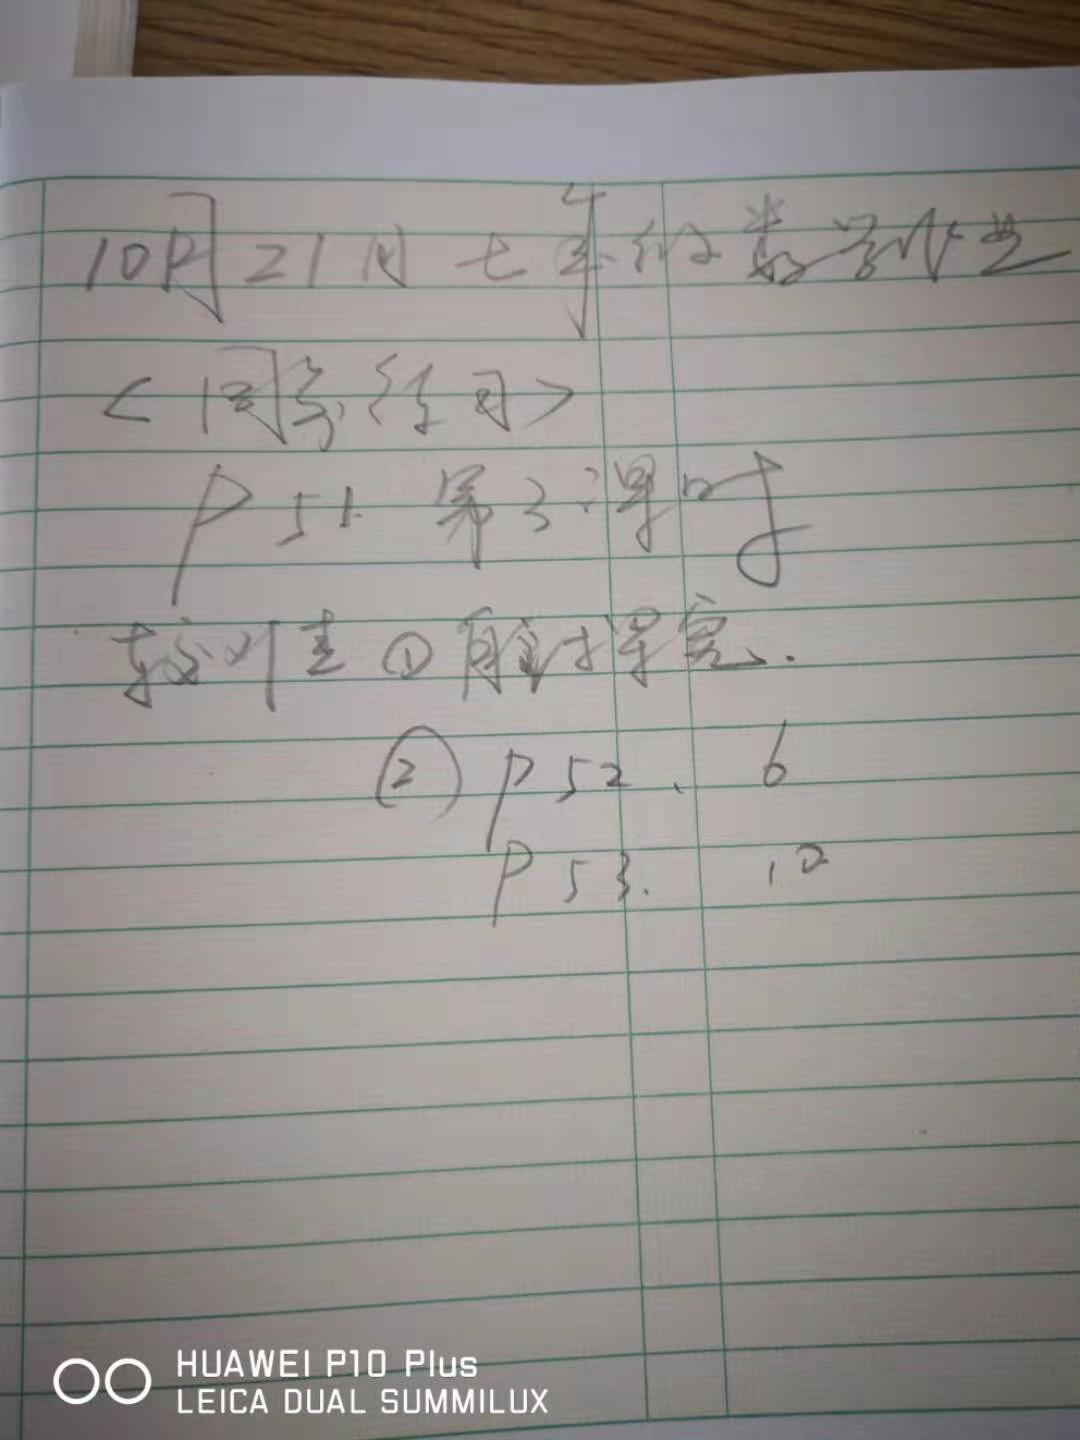 10月21日七年级数学作业
<同步练习>
P51 第3课时
校对生①自备课完.
② P52、 6
P53. 10
HUAWEI P10 Plus
LEICA DUAL SUMMILUX